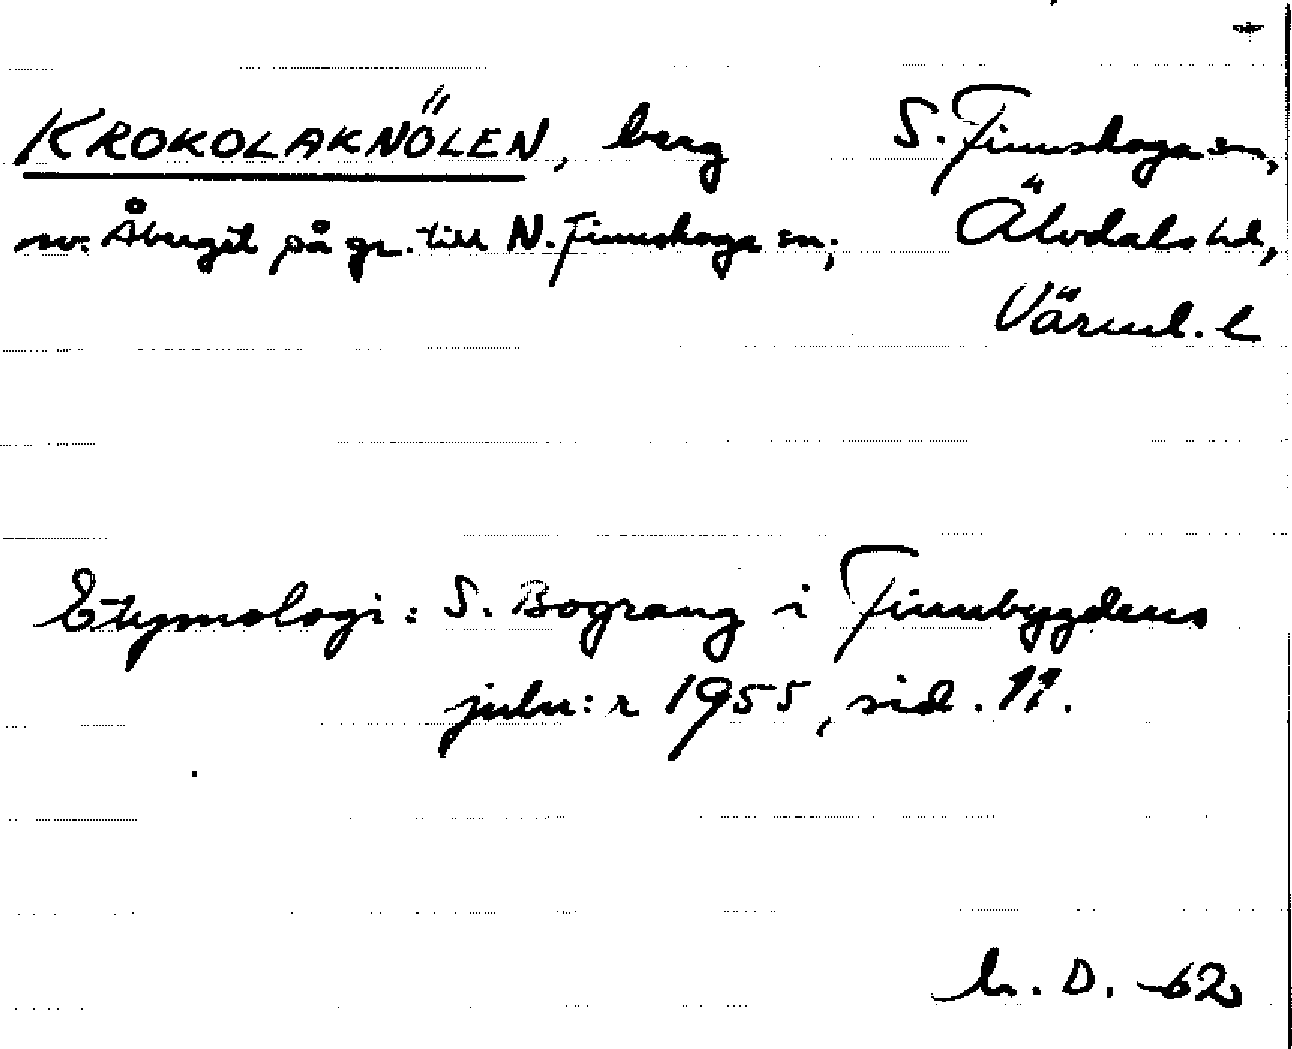 KROKOLAKNÖLEN, berg S. Finnskoga sn,
sv. Åberget på gr. till N. Finnskoga sn; Älvdals hd,
Värml. l
Etymologi: S. Bograng i Finnbygdens
julnr 1955, sid. 11.
D. -62